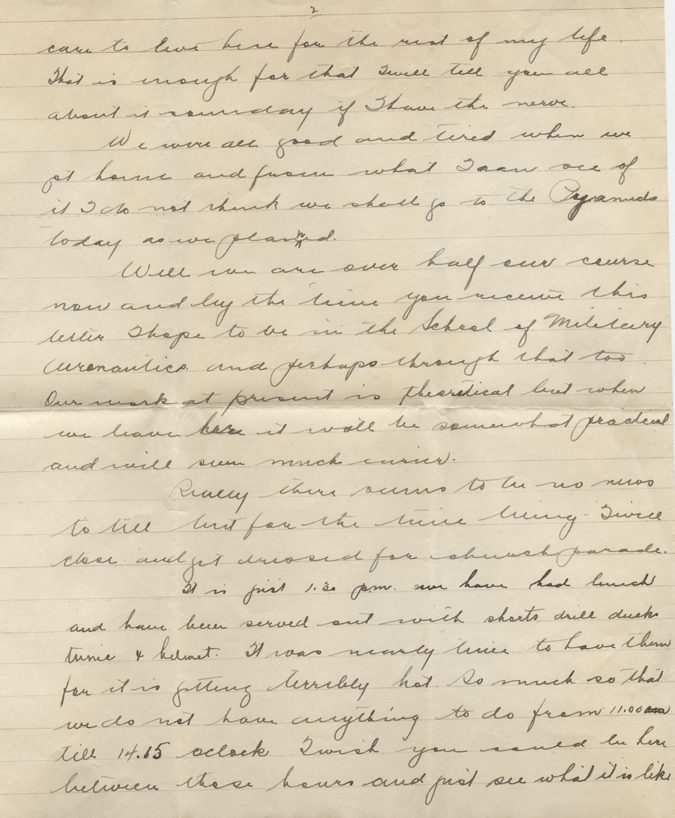 2
care to live here for the rest of my life.
That is enough for that I will tell you all
about it someday if I have the nerve.
We were all good and tired when we
got home and from what I can see of
it I do not think we shall go to the Pyramids
today as we planned.
Well we are over half our course
now and by the time you receive this
letter I hope to be in the School of Military
Aeronautics and perhaps through that too.
Our work at present is theoretical but when
we leave here it will be somewhat practical
and will seem much easier.
Really there seems to be no news
to tell but for the time being I will
close and get dressed for church parade.
It is just 1.30 pm. we have had lunch
and have been served out with shorts drill ducks
tunic & helmet. It was nearly time to have them
for it is getting terribly hot. So much so that
we do not have anything to do from 11.00 am
till 14.15 oclock I wish you could be here
between those hours and just see what it is like